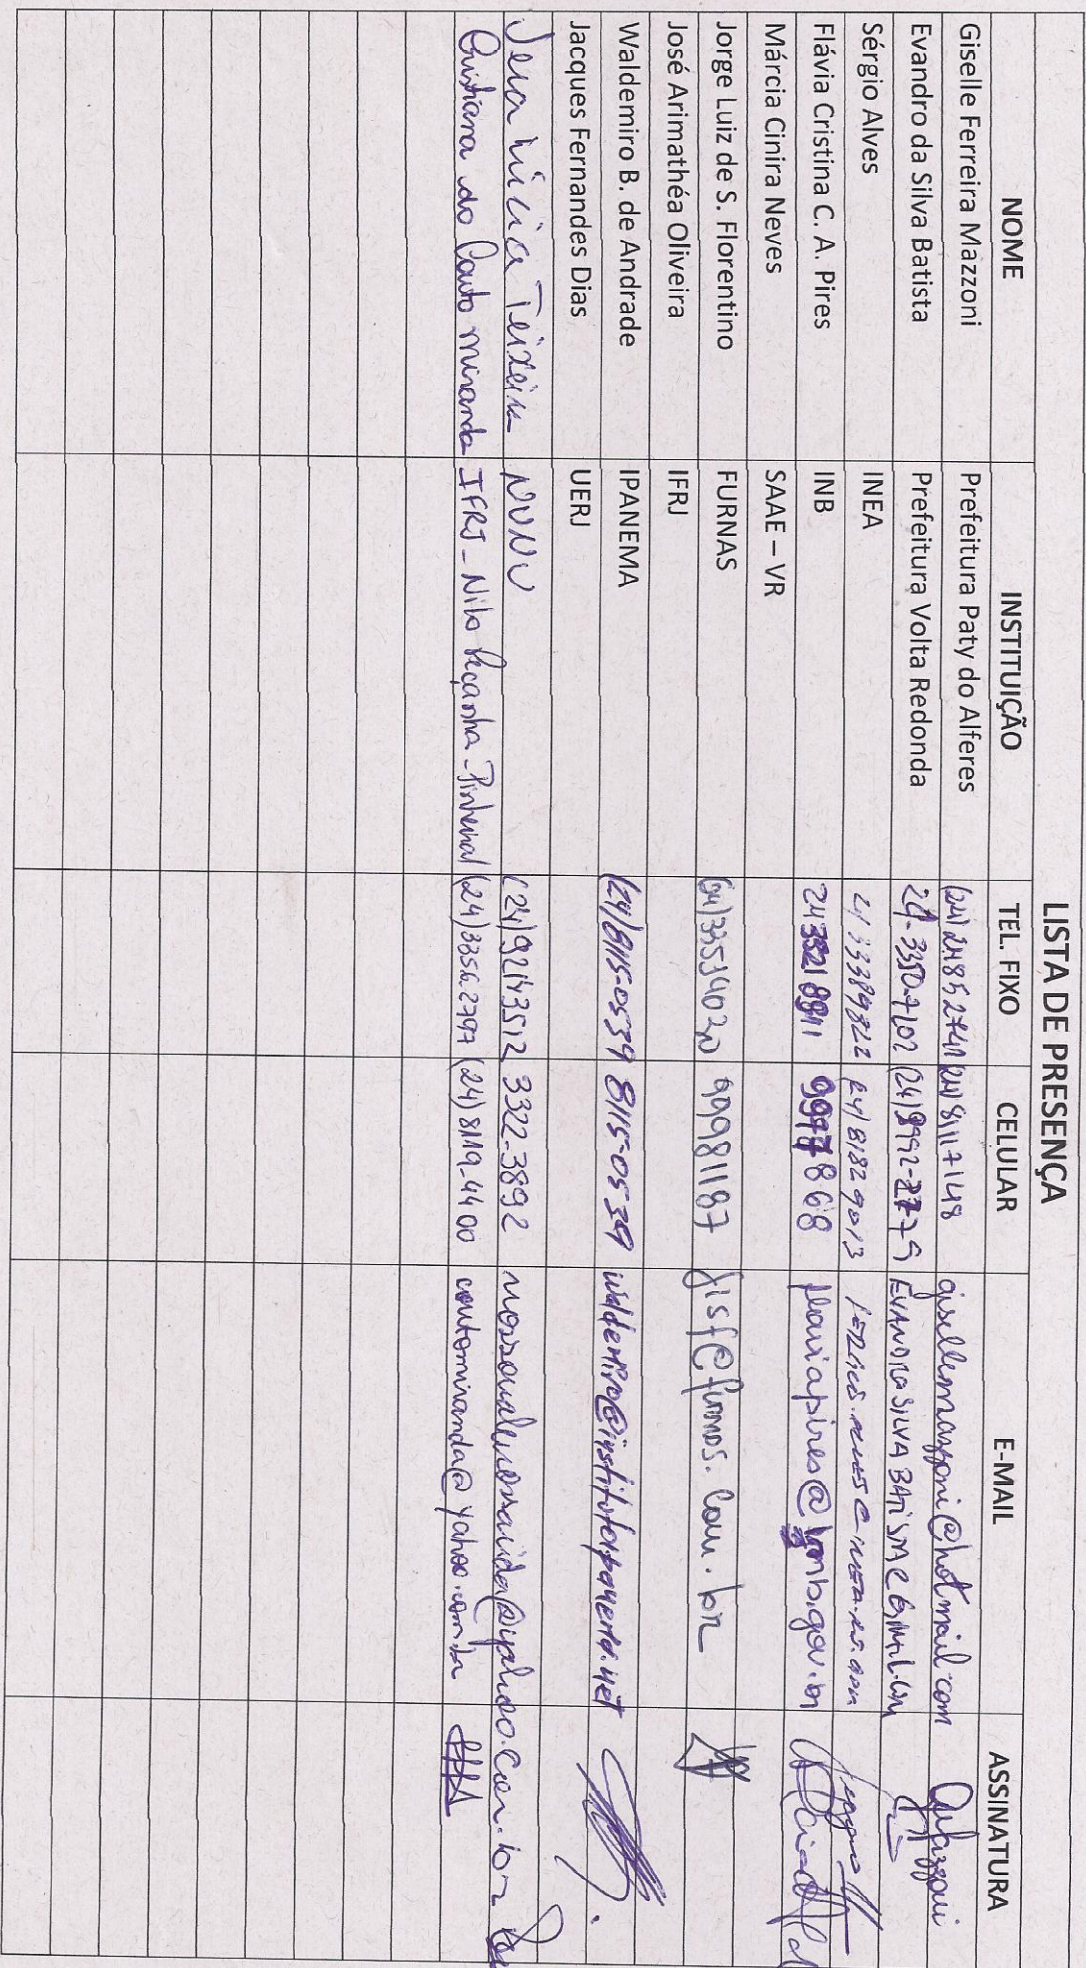 LISTA DE PRESENÇA
NOME INSTITUIÇÃO TEL. FIXO CELULAR E-MAIL ASSINATURA
Giselle Ferreira Mazzoni Prefeitura Paty do Alferes (24) 24852741 (24) 81117148 gisellemazzoni@hotmail.com
Evandro da Silva Batista Prefeitura Volta Redonda 24-3350-7102 EVANDROSILVABATISTA@GMAIL.COM
Sérgio Alves INEA 24 81829013
Flávia Cristina C. A. Pires INB 24 33218911 9978868 flaviapires@inb.gov.br
Márcia Cinira Neves SAAE – VR
Jorge Luiz de S. Florentino FURNAS (24) 33514020 99981187 jlsf@furnas.com.br
José Arimathéa Oliveira IFRJ
Waldemiro B. de Andrade IPANEMA (24) 8115-0539 8115-0539 waldemiro@institutoipanema.net
Jacques Fernandes Dias UERJ
Vera Lúcia Teixeira NVNV (24) 92143512 3322-3892 nossovalenossavida@yahoo.com.br
Cristiana do Couto Miranda IFRJ - Nilo Peçanha - Pinheiral (24) 3356.2797 (24) 8119-4400 coutomiranda@yahoo.com.br